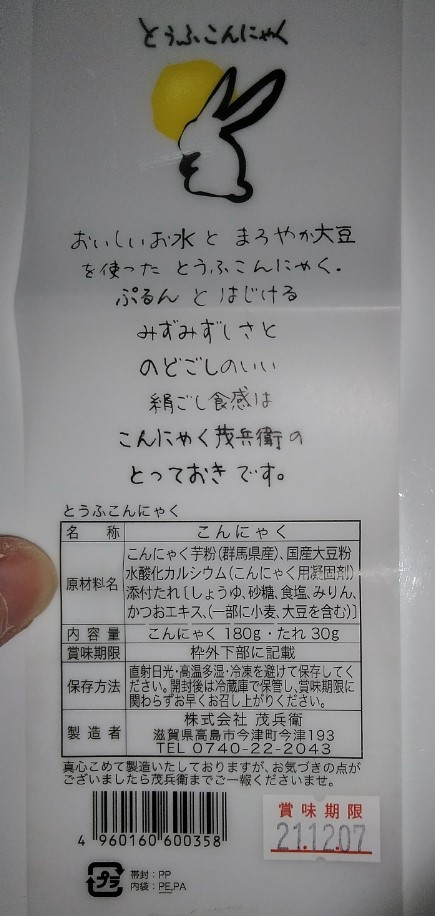 とうふこんにゃく
おいしいお水と まろやか大豆
を使った とうふこんにゃく.
ぷるん と はじける
みずみずしさと
のどごしのいい
絹ごし食感は
こんにゃく茂兵衛の
とっておき です。
とうふこんにゃく
名称 こんにゃく
原材料名 こんにゃく芋粉(群馬県産)、国産大豆粉
水酸化カルシウム(こんにゃく用凝固剤)
添付たれ〔しょうゆ、砂糖、食塩、みりん、
かつおエキス、(一部に小麦、大豆を含む)〕
内容量 こんにゃく 180g・たれ 30g
賞味期限 枠外下部に記載
保存方法 直射日光・高温多湿・冷凍を避けて保存してく
ださい。開封後は冷蔵庫で保管し、賞味期限に
関わらずお早くお召し上がりください。
製造者 株式会社 茂兵衛
滋賀県高島市今津町今津193
TEL 0740-22-2043
真心こめて製造いたしておりますが、お気づきの点が
ございましたら茂兵衛までご一報くださいませ。
4 960160 600358
賞味期限
21.12.07
プラ
帯封:PP
内袋:PE,PA